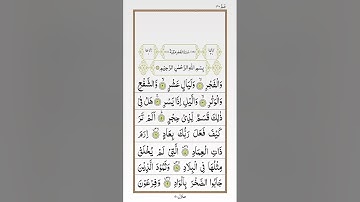 بِسْمِ اللّٰهِ الرَّحْمٰنِ الرَّحِيْمِ
وَالْفَجْرِ ۙ وَلَيَالٍ عَشْرٍ ۙ وَّالشَّفْعِ
وَالْوَتْرِ ۙ وَالَّيْلِ اِذَا يَسْرِ ۚ هَلْ فِيْ
ذٰلِكَ قَسَمٌ لِّذِيْ حِجْرٍ ؕ اَلَمْ تَرَ
كَيْفَ فَعَلَ رَبُّكَ بِعَادٍ ۙ اِرَمَ
ذَاتِ الْعِمَادِ ۙ الَّتِيْ لَمْ يُخْلَقْ
مِثْلُهَا فِي الْبِلَادِ ۙ وَثَمُوْدَ الَّذِيْنَ
جَابُوا الصَّخْرَ بِالْوَادِ ۙ وَفِرْعَوْنَ